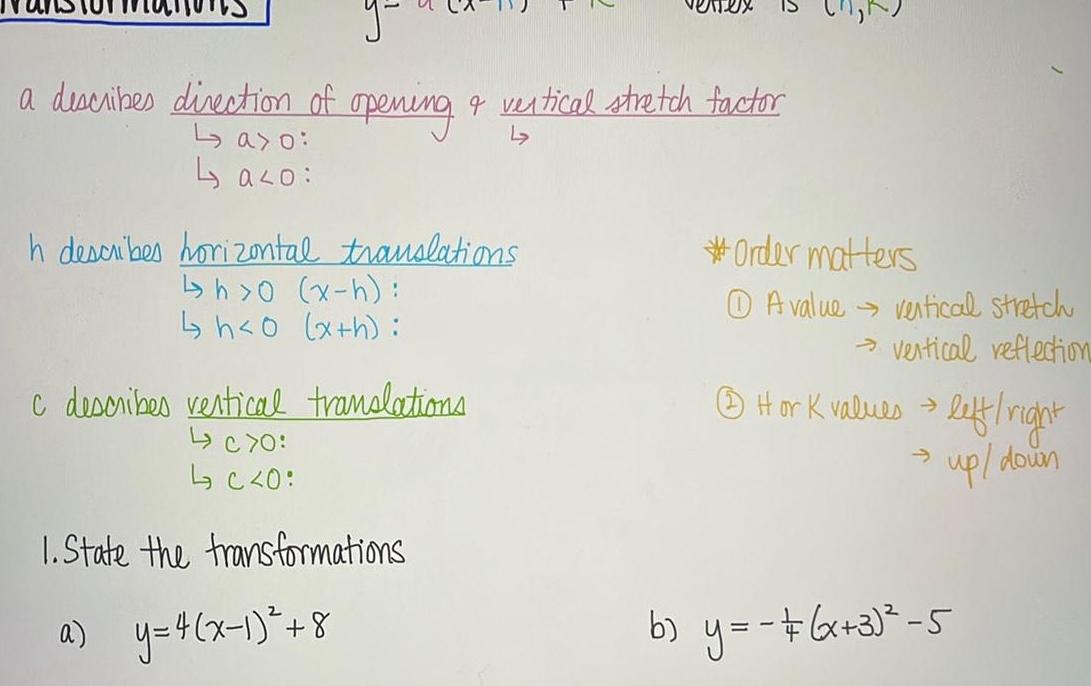 Transformations
y= a (x-h) + k vertex is (h,k)
a describes direction of opening & vertical stretch factor
↳ a>0: ↳
↳ a<0:
h describes horizontal translations
↳ h>0 (x-h) :
↳ h<0 (x+h) :
c describes vertical translations
↳ c>0:
↳ c<0:
* Order matters
① A value → vertical stretch
→ vertical reflection
② H or K values → left/right
→ up/down
1. State the transformations
a) y=4(x-1)²+8
b) y=-¼(x+3)²-5